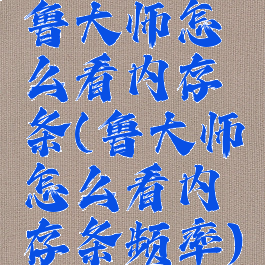 鲁大师怎
么看内存
条(鲁大师
怎么看内
存条频率)